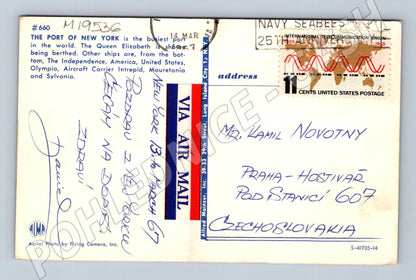 M19536
#660
THE PORT OF NEW YORK is the busiest port
in the world. The Queen Elizabeth is shown
being berthed. Other ships are, from the bot-
tom, The Independence, America, United States,
Olympia, Aircraft Carrier Intrepid, Mauretania
and Sylvania.
14 MAR
1967
NAVY SEABEES
25TH ANNIVERSARY
INTERNATIONAL TELECOMMUNICATION UNION
11 CENTS UNITED STATES POSTAGE
address
VIA AIR MAIL
Alfred Mainzer, Inc., 39-33 29th Street, Long Island City 1,
NEW YORK 13th MARCH 67
POZDRAV Z
ZDRAVÍ
MR. KAMIL NOVOTNY
PRAHA-HOSTIVAŘ
POD STANICÍ 607
CZECHOSLOVAKIA
Aerial Photo by Flying Camera, Inc.
S-41935-14
POHLEDNICE